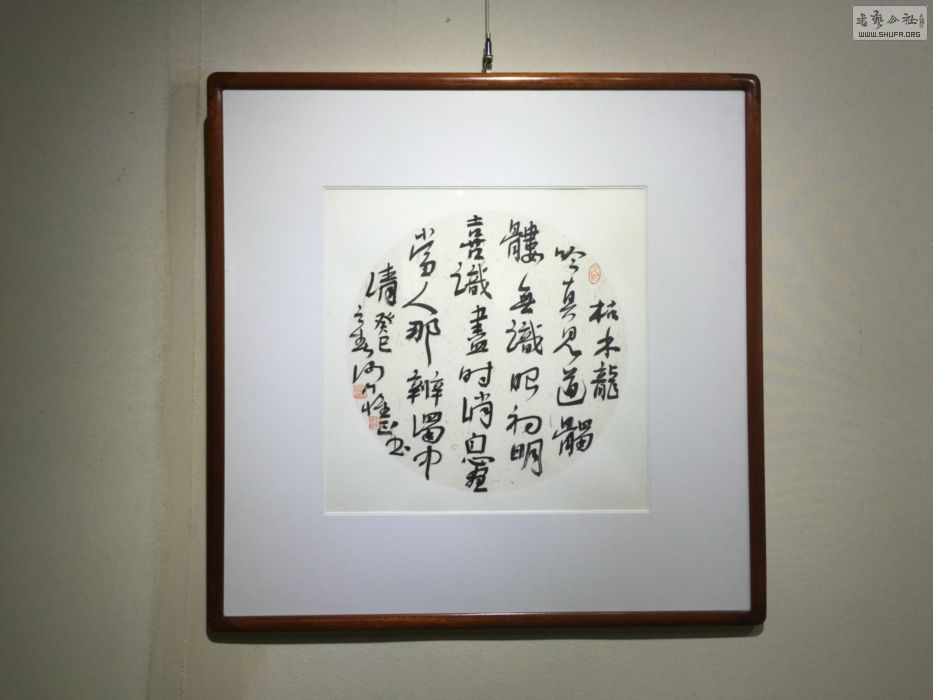 枯木龍
吟真見道髑
髏無識眼初明
喜識盡时消息盡
當人那辨濁中
清 癸巳
之春沙門书
書藝公社
WWW.SHUFA.ORG